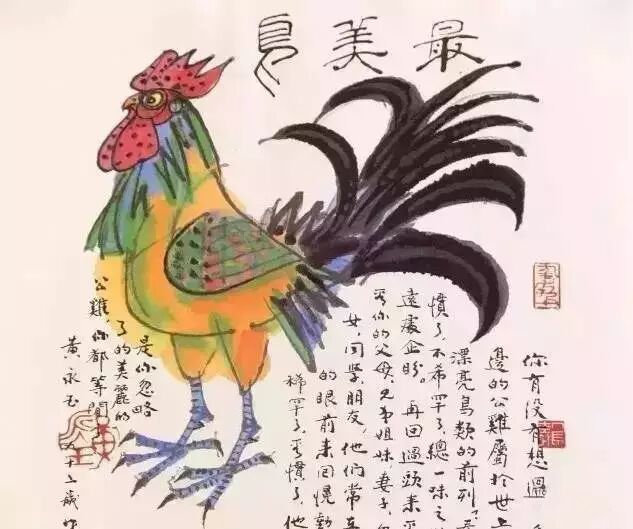 最美鳥
你有没有想過
邊的公雞屬於世上
漂亮鳥類的前列
慣了，不希罕了，總一味
遠處企盼。再回過頭来
看你的父母，兄弟姐妹，妻子，
女，同學，朋友，他們常在
的眼前来回幌動
稀罕了，看慣了，他
是你忽略
了的美麗的
公雞，你都等閒
黄永玉 九十二歲作